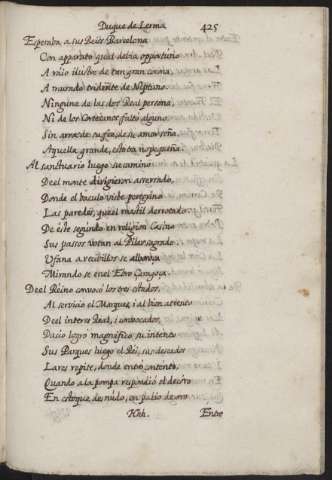 Duque de Lerma 425
Esperaba a sus Reies Barcelona
Con aparato, qual debia oportuno
A raio ilustre de tan gran corona,
A murado tridente de Neptuno.
Ninguna de las dos Real persona,
Ni de los Cortesanos falto alguno
Sin arra de su fee, de su amor seña,
Aquella grande, esta no pequeña
Al sanctuario luego su camino
Deel monte dirigieron aserrado,
Donde el baculo viste peregrino
Las paredes, que el mastil derrotado:
De este segundo en religion Casino
Sus passos votan al Pilar sagrado
Ufana a recibillos se alboroza
Mirandose en el Ebro Çaragoça.
Deel Reino convocó los tres estados,
Al servicio el Marques, i al bien atento
Deel interes Real, i convocados,
Dacio logró magnifico su intento
Sus Parques luego el Rei, sus deseados
Lares repite, donde entró contento,
Quando a la pompa respondió el decoro
En estoque desnudo, en palio de oro
Hoh. Entre